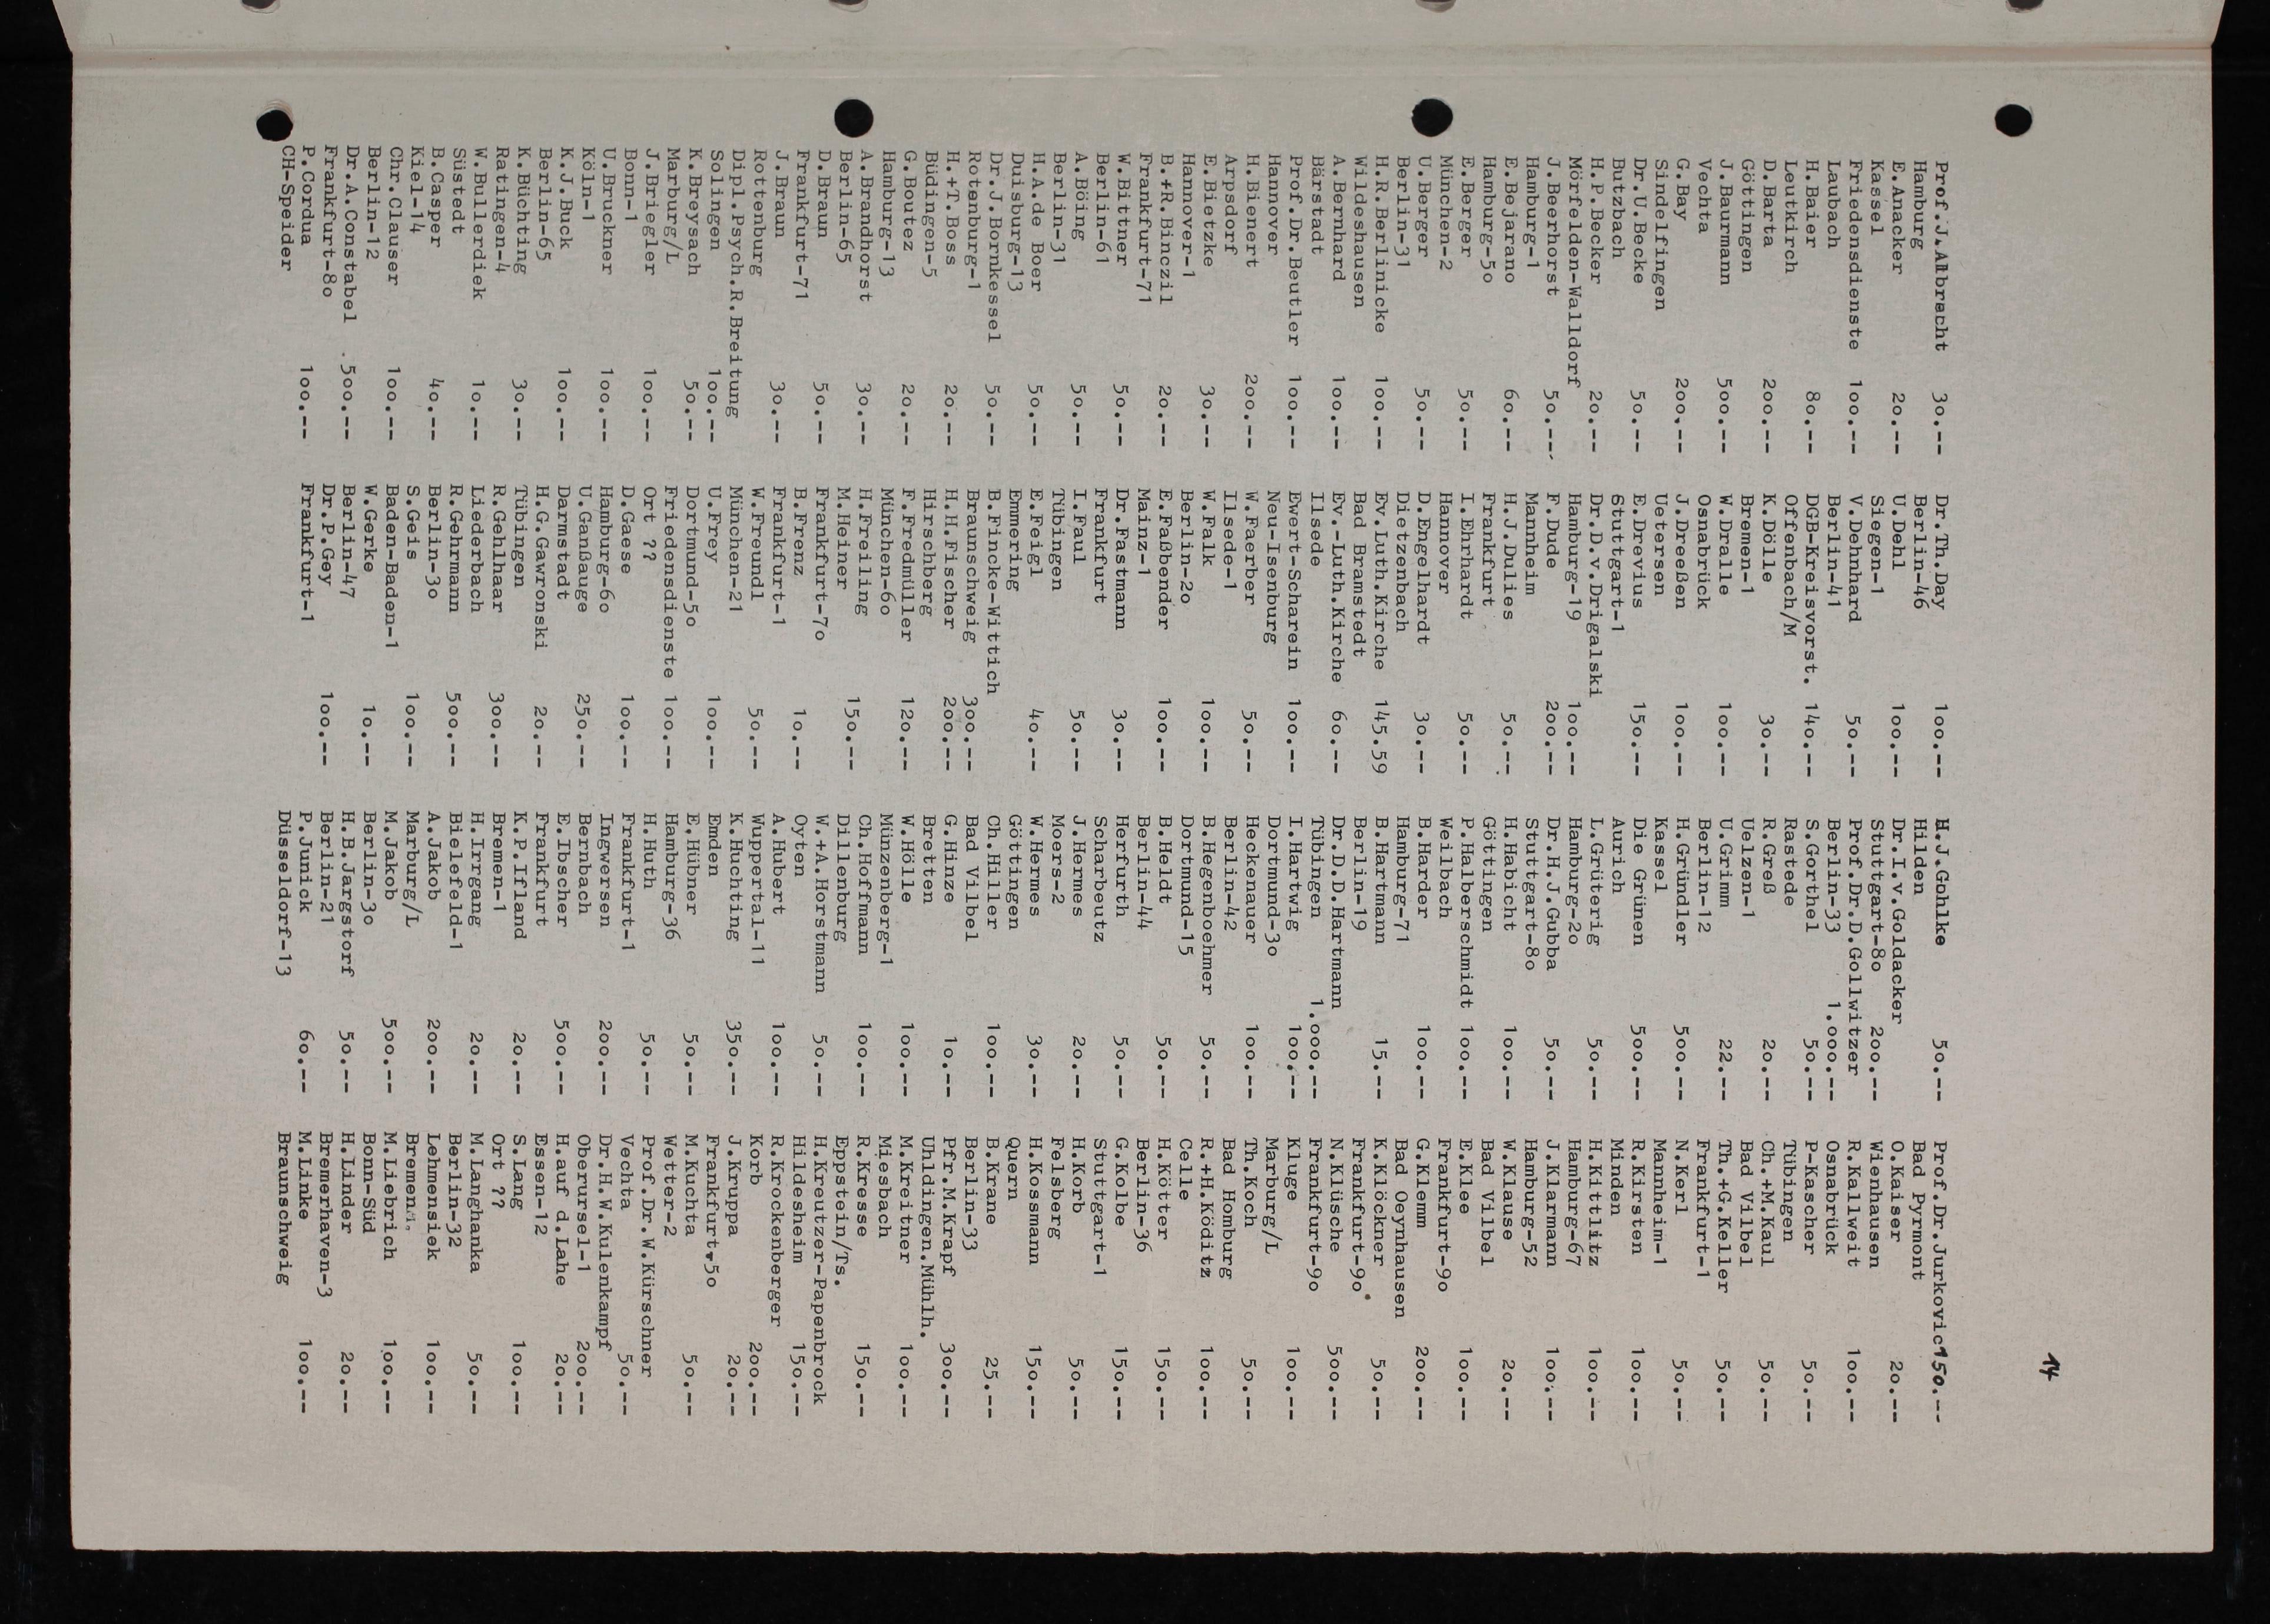 14
Prof.J.Albrecht 3o.--
Hamburg
E.Anacker 2o.--
Kassel
Friedensdienste 1oo.--
Laubach
H.Baier 8o.--
Leutkirch
D.Barta 2oo.--
Göttingen
J.Baurmann 5oo.--
Vechta
G.Bay 2oo.--
Sindelfingen
Dr.U.Becke 5o.--
Butzbach
H.P.Becker 2o.--
Mörfelden-Walldorf
J.Beerhorst 5o.--
Hamburg-1
E.Bejarano 6o.--
Hamburg-5o
E.Berger 5o.--
München-2
U.Berger 5o.--
Berlin-31
H.R.Berlinicke 1oo.--
Wildeshausen
A.Bernhard 1oo.--
Bärstadt
Prof.Dr.Beutler 1oo.--
Hannover
H.Bienert 2oo.--
Arpsdorf
E.Bietzke 3o.--
Hannover-1
B.+R.Binczil 2o.--
Frankfurt-71
W.Bittner 5o.--
Berlin-61
A.Böing 5o.--
Berlin-31
H.A.de Boer 5o.--
Duisburg-13
Dr.J.Bornkessel 5o.--
Rotenburg-1
H.+T.Boss 2o.--
Büdingen-5
G.Boutez 2o.--
Hamburg-13
A.Brandhorst 3o.--
Berlin-65
D.Braun 5o.--
Frankfurt-71
J.Braun 3o.--
Rottenburg
Dipl.Psych.R.Breitung
Solingen 1oo.--
K.Breysach 5o.--
Marburg/L
J.Briegler 1oo.--
Bonn-1
U.Bruckner 1oo.--
Köln-1
K.J.Buck 1oo.--
Berlin-65
K.Büchting 3o.--
Ratingen-4
W.Bullerdiek 1o.--
Süstedt
B.Casper 4o.--
Kiel-14
Chr.Clauser 1oo.--
Berlin-12
Dr.A.Constabel 5oo.--
Frankfurt-8o
P.Cordua 1oo.--
CH-Speider
Dr.Th.Day 1oo.--
Berlin-46
U.Dehl 1oo.--
Siegen-1
V.Dehnhard 5o.--
Berlin-41
DGB-Kreisvorst. 14o.--
Offenbach/M
K.Dölle 3o.--
Bremen-1
W.Dralle 1oo.--
Osnabrück
J.Dreeßen 1oo.--
Uetersen
E.Drevius 15o.--
Stuttgart-1
Dr.D.v.Drigalski
Hamburg-19 1oo.--
F.Dude 2oo.--
Mannheim
H.J.Dulies 5o.--
Frankfurt
I.Ehrhardt 5o.--
Hannover
D.Engelhardt 3o.--
Dietzenbach
Ev.Luth.Kirche 145.59
Bad Bramstedt
Ev.-Luth.Kirche 6o.--
Ilsede
Ewert-Scharein 1oo.--
Neu-Isenburg
W.Faerber 5o.--
Ilsede-1
W.Falk 1oo.--
Berlin-2o
E.Faßbender 1oo.--
Mainz-1
Dr.Fastmann 3o.--
Frankfurt
I.Faul 5o.--
Tübingen
E.Feigl 4o.--
Emmering
B.Fincke-Wittich
Braunschweig 3oo.--
H.H.Fischer 2oo.--
Hirschberg
F.Fredmüller 12o.--
München-6o
H.Freiling
M.Heiner 15o.--
Frankfurt-7o
B.Frenz 1o.--
Frankfurt-1
W.Freundl 5o.--
München-21
U.Frey 1oo.--
Dortmund-5o
Friedensdienste 1oo.--
Ort ??
D.Gaese 1oo.--
Hamburg-6o
U.Ganßauge 25o.--
Darmstadt
H.G.Gawronski 2o.--
Tübingen
R.Gehlhaar 3oo.--
Liederbach
R.Gehrmann 5oo.--
Berlin-3o
S.Geis 1oo.--
Baden-Baden-1
W.Gerke 1o.--
Berlin-47
Dr.P.Gey 1oo.--
Frankfurt-1
H.J.Gohlke 5o.--
Hilden
Dr.I.v.Goldacker
Stuttgart-8o 2oo.--
Prof.Dr.D.Gollwitzer
Berlin-33 1.ooo.--
S.Gorthel 5o.--
Rastede
R.Greß 2o.--
Uelzen-1
U.Grimm 22.--
Berlin-12
H.Gründler 5oo.--
Kassel
Die Grünen 5oo.--
Aurich
L.Grüterig 5o.--
Hamburg-2o
Dr.H.J.Gubba 5o.--
Stuttgart-8o
H.Habicht 1oo.--
Göttingen
P.Halberschmidt 1oo.--
Weilbach
B.Harder 1oo.--
Hamburg-71
B.Hartmann 15.--
Berlin-19
Dr.D.D.Hartmann
Tübingen 1.ooo.--
I.Hartwig 1oo.--
Dortmund-3o
Heckenauer 1oo.--
Berlin-42
B.Hegenboehmer 5o.--
Dortmund-15
B.Heldt 5o.--
Berlin-44
Herfurth 5o.--
Scharbeutz
J.Hermes 2o.--
Moers-2
W.Hermes 3o.--
Göttingen
Ch.Hiller 1oo.--
Bad Vilbel
G.Hinze 1o.--
Bretten
W.Hölle 1oo.--
Münzenberg-1
Ch.Hoffmann 1oo.--
Dillenburg
W.+A.Horstmann 5o.--
Oyten
A.Hubert 1oo.--
Wuppertal-11
K.Huchting 35o.--
Emden
E.Hübner 5o.--
Hamburg-36
H.Huth 5o.--
Frankfurt-1
Ingwersen 2oo.--
Bernbach
E.Ibscher 5oo.--
Frankfurt
K.P.Ifland 2o.--
Bremen-1
H.Irrgang 2o.--
Bielefeld-1
A.Jakob 2oo.--
Marburg/L
M.Jakob 5oo.--
Berlin-3o
H.B.Jargstorf 5o.--
Berlin-21
P.Junick 6o.--
Düsseldorf-13
Prof.Dr.Jurkovic 15o.--
Bad Pyrmont
O.Kaiser 2o.--
Wienhausen
R.Kallweit 1oo.--
Osnabrück
P-Kascher 5o.--
Tübingen
Ch.+M.Kaul 5o.--
Bad Vilbel
Th.+G.Keller 5o.--
Frankfurt-1
N.Kerl 5o.--
Mannheim-1
R.Kirsten 1oo.--
Minden
H.Kittlitz 1oo.--
Hamburg-67
J.Klarmann 1oo.--
Hamburg-52
W.Klause 2o.--
Bad Vilbel
E.Klee 1oo.--
Frankfurt-9o
G.Klemm 2oo.--
Bad Oeynhausen
K.Klöckner 5o.--
Frankfurt-9o
N.Klüsche 5oo.--
Frankfurt-9o
Kluge 1oo.--
Marburg/L
Th.Koch 5o.--
Bad Homburg
R.+H.Köditz 1oo.--
Celle
H.Kötter 15o.--
Berlin-36
G.Kolbe 15o.--
Stuttgart-1
H.Korb 5o.--
Felsberg
H.Kossmann 15o.--
Quern
B.Krane 25.--
Berlin-33
Pfr.M.Krapf 3oo.--
Uhldingen.Mühlh.
M.Kreitner 1oo.--
Miesbach
R.Kresse 15o.--
Eppstein/Ts.
H.Kreutzer-Papenbrock
Hildesheim 15o.--
R.Krockenberger
Korb 2oo.--
J.Kruppa 2o.--
Frankfurt-5o
M.Kuchta 5o.--
Wetter-2
Prof.Dr.W.Kürschner
Vechta 5o.--
Dr.H.W.Kulenkampf
Oberursel-1 2oo.--
H.auf d.Lahe 2o.--
Essen-12
S.Lang 1oo.--
Ort ??
M.Langhanka 5o.--
Berlin-32
Lehmensiek 1oo.--
Bremen
M.Liebrich 1oo.--
Bonn-Süd
H.Linder 2o.--
Bremerhaven-3
M.Linke 1oo.--
Braunschweig